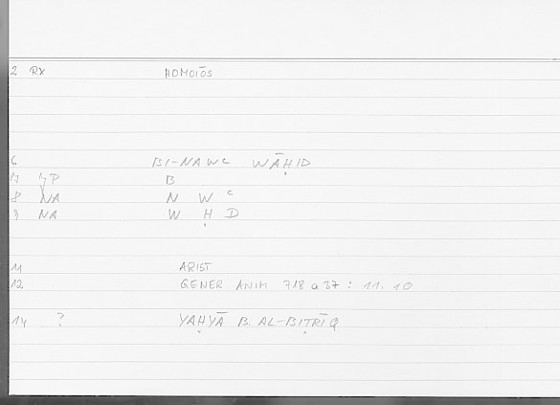 2 RX HOMOIŌS
6 BI-NAWᶜ WĀḤID
7 YP B
8 NA N W ᶜ
9 NA W Ḥ D
11 ARIST
12 GENER ANIM 718 a 37 : 11. 10
14 ? YAḤYĀ B. AL-BIṬRĪQ